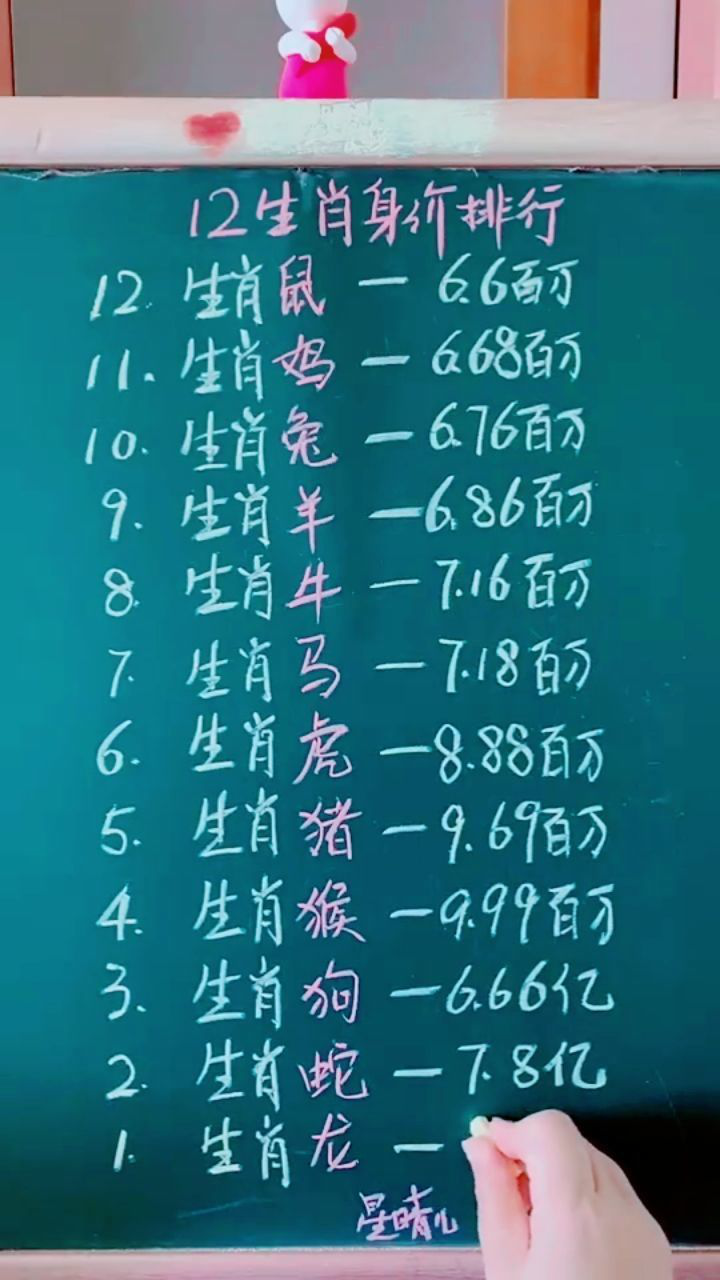 12生肖身价排行
12. 生肖鼠 — 6.6百万
11. 生肖鸡 — 6.68百万
10. 生肖兔 — 6.76百万
9. 生肖羊 — 6.86百万
8. 生肖牛 — 7.16百万
7. 生肖马 — 7.18百万
6. 生肖虎 — 8.88百万
5. 生肖猪 — 9.69百万
4. 生肖猴 — 9.99百万
3. 生肖狗 — 6.66亿
2. 生肖蛇 — 7.8亿
1. 生肖龙 —
星晴儿